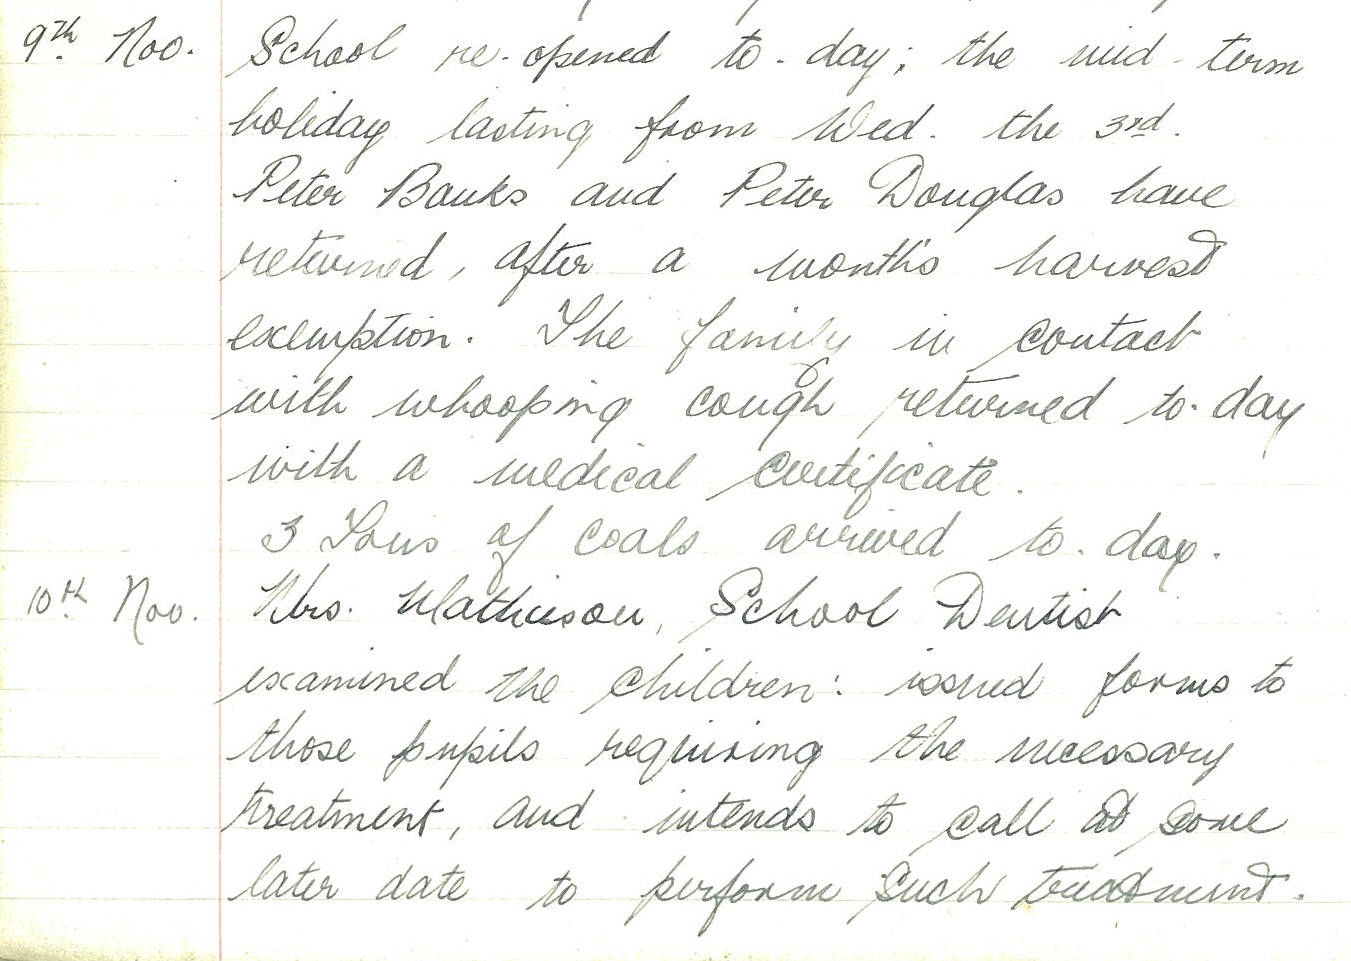 9th Nov. School re-opened to-day; the mid-term
holiday lasting from Wed. the 3rd.
Peter Banks and Peter Douglas have
returned, after a month's harvest
exemption. The family in contact
with whooping cough returned to-day
with a medical certificate.
3 Tons of coals arrived to-day.
10th Nov. Mrs. Mathieson, School Dentist
examined the children: issued forms to
those pupils requiring the necessary
treatment, and intends to call at some
later date to perform such treatment.